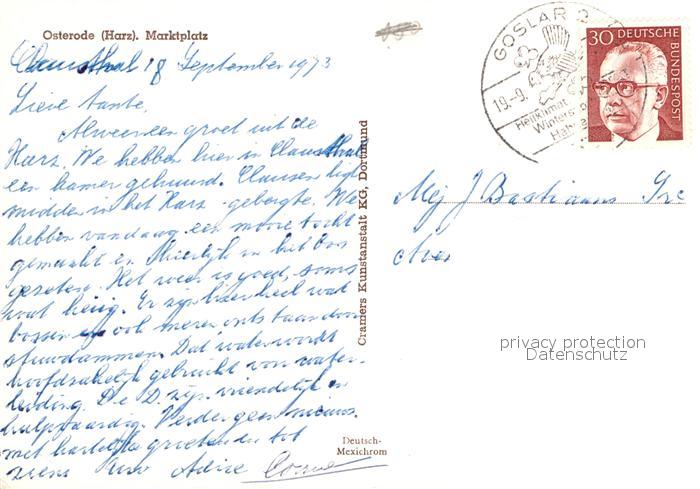 Osterode (Harz). Marktplatz
Clausthal 18 September 1973
Lieve tante,
Alweer een groet uit de
Harz. We hebben hier in Clausthal
een kamer gehuurd. Clausthal ligt
midden in het Harz-gebergte. We
hebben vandaag een mooie tocht
gemaakt en heerlijk in het bos
gezeten. Het weer is goed, soms
wat heiig. Er zijn hier heel wat
bossen en ook meren ontstaan door
stuwdammen. Dat water wordt
hoofdzakelijk gebruikt voor water-
leiding. De D. zijn vriendelijk en
hulpvaardig. Verder geen nieuws.
met hartelijke groeten en tot
ziens Uw
Cramers Kunstanstalt KG, Dortmund
Deutsch-
Mexichrom
GOSLAR 2
19.-9.
Heilklimat.
Winters
Hah
30 DEUTSCHE
BUNDESPOST
Mej J Bastiaans
privacy protection
Datenschutz